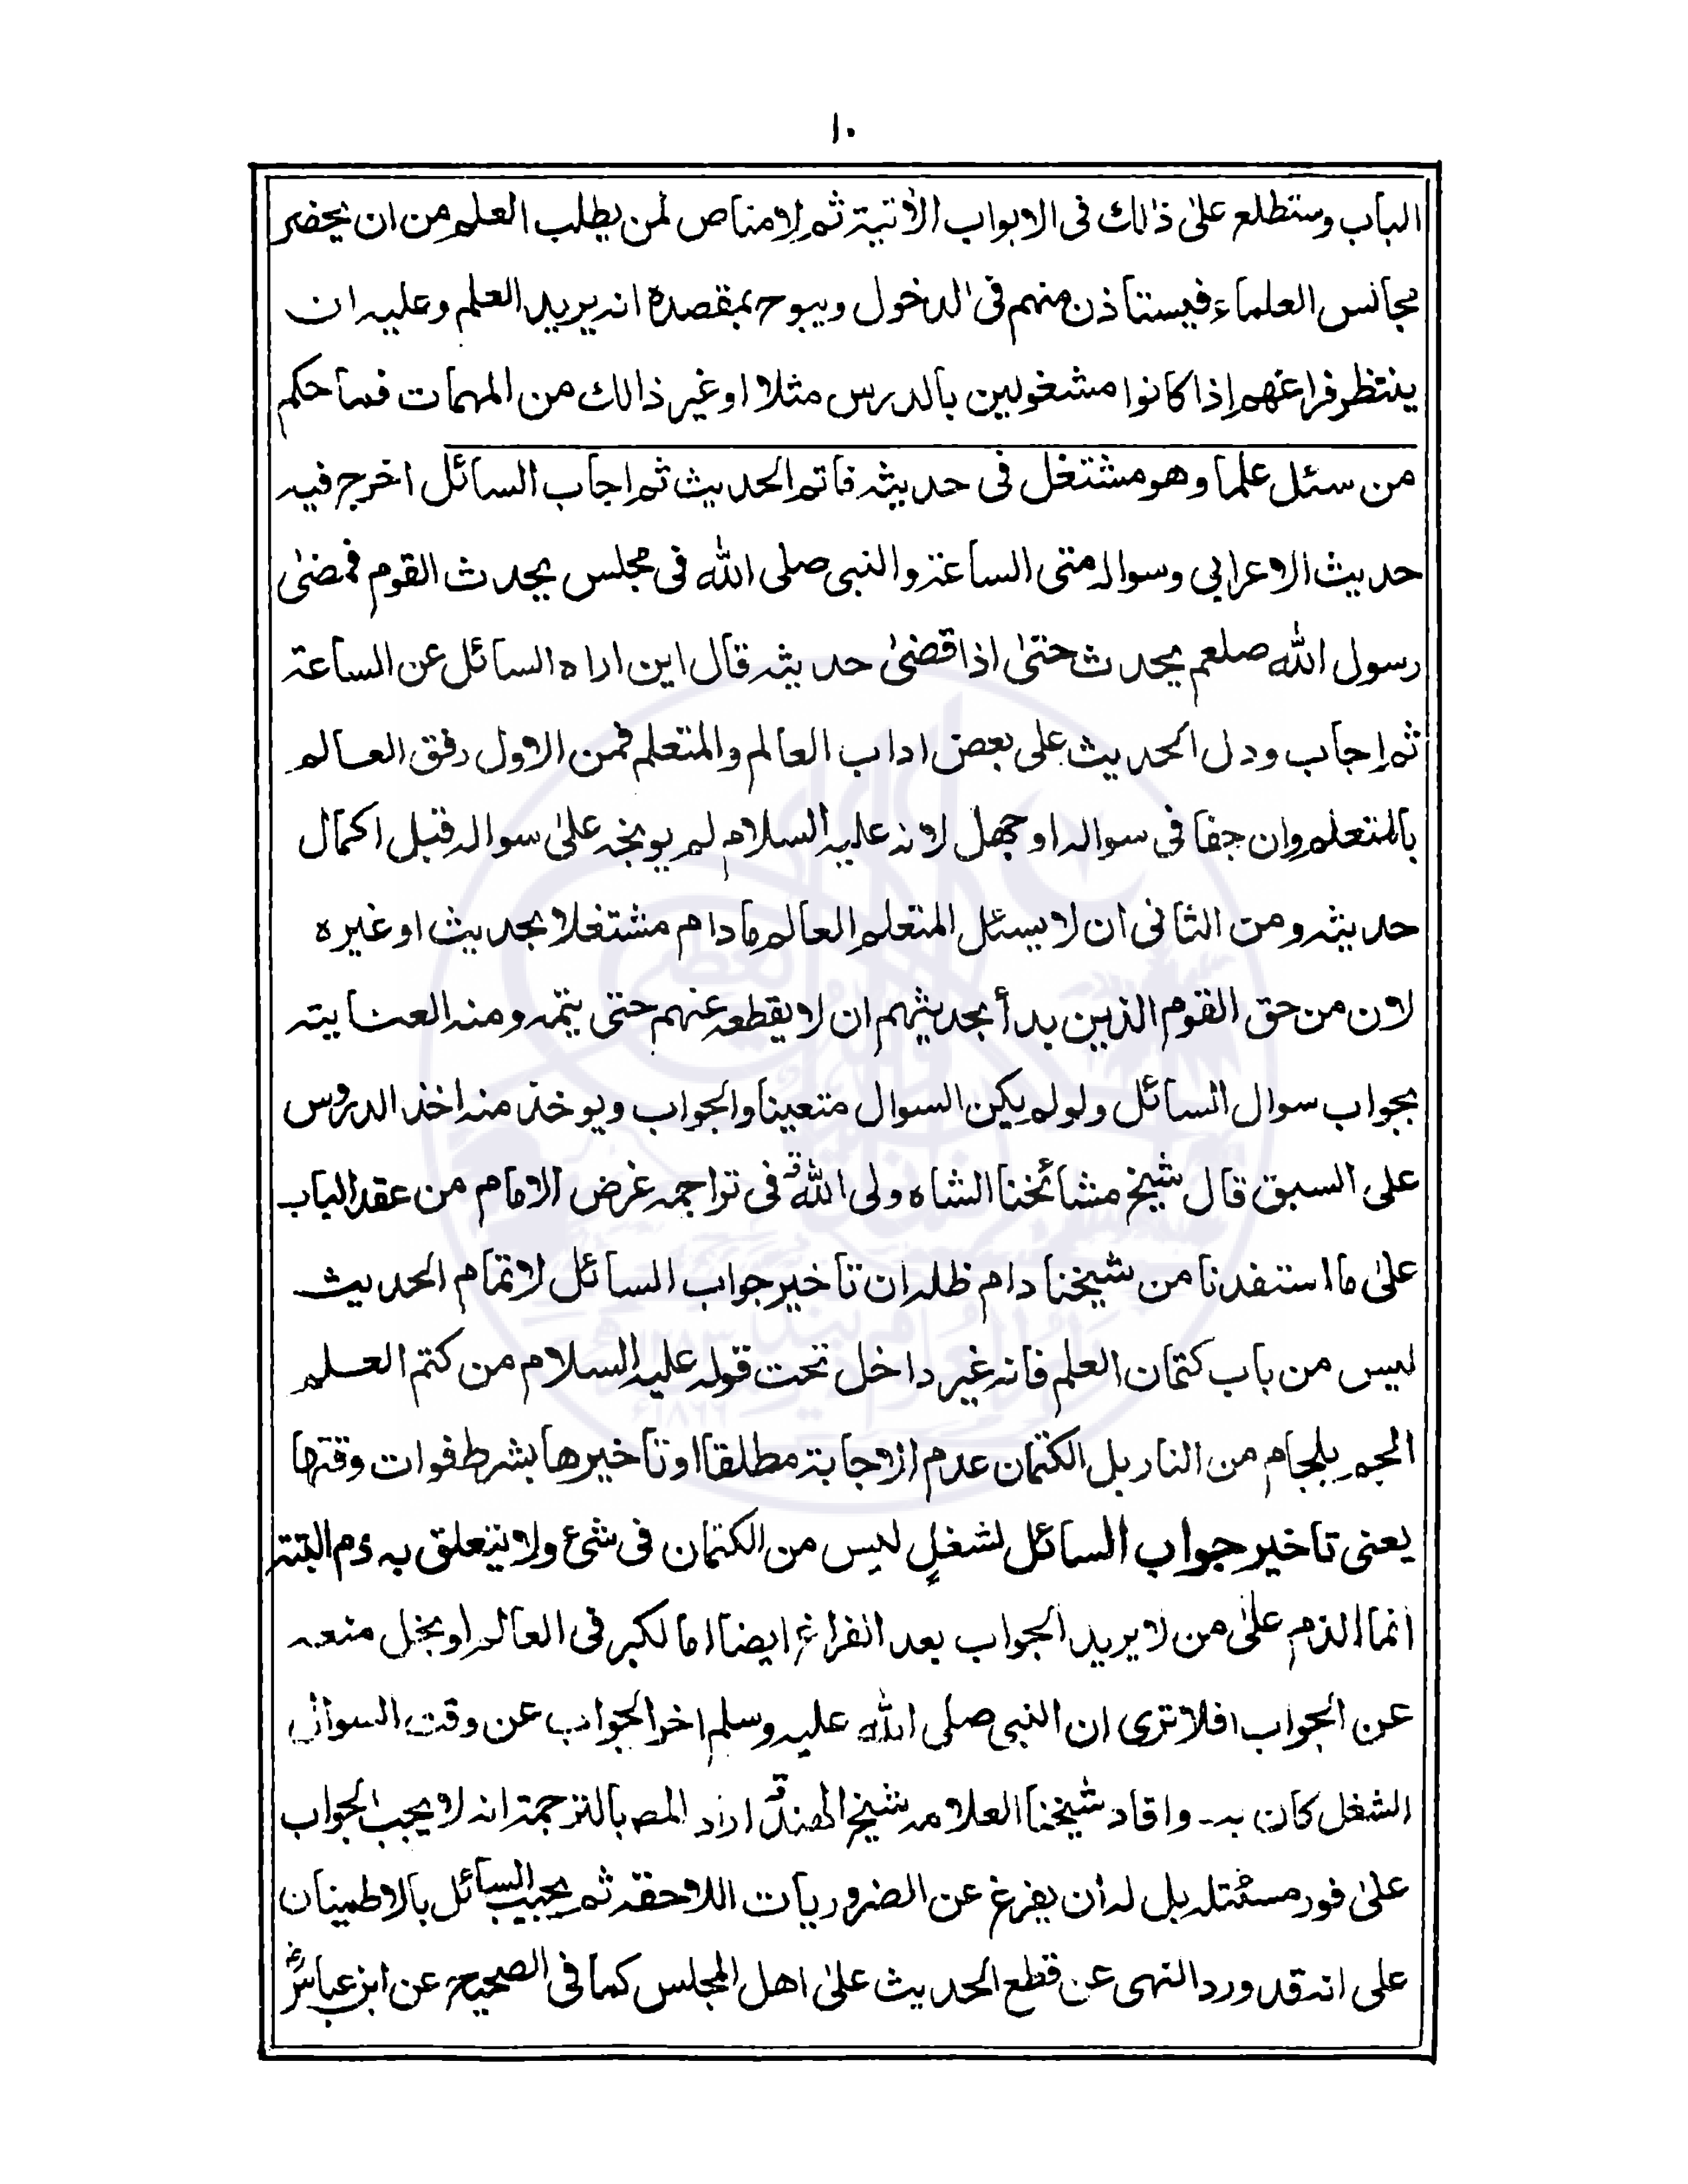 ١٠
الباب وستطلع علىٰ ذالك فى الابواب الأتية ثم لامناص لمن يطلب العلم من ان يحضر
مجالس العلماء فيستاذن منهم فى الدخول ويبوح بمقصده انه يريد العلم وعليه ان
ينتظر فراغهم اذا كانوا مشغولين بالدرس مثلا او غير ذالك من المهمات فما حكم
من سئل علما وهو مشتغل فى حديثه فاتم الحديث ثم اجاب السائل اخرج فيه
حديث الاعرابي وسواله متى الساعة والنبى صلى الله فى مجلس يحدث القوم فمضىٰ
رسول الله صلعم يحدث حتىٰ اذا قضىٰ حديثه قال اين اراه السائل عن الساعة
ثم اجاب ودل الحديث على بعض اداب العالم والمتعلم فمن الاول رفق العالم
بالمتعلم وان جفا فى سواله او جهل لانه عليه السلام لم يوبخه علىٰ سواله قبل اكمال
حديثه ومن الثانى ان لا يسئل المتعلم العالم مادام مشتغلا بحديث او غيره
لان من حق القوم الذين بدأ بحديثهم ان لا يقطعه عنهم حتى يتمه ومنه العناية
بجواب سوال السائل ولو لم يكن السوال متعينا والجواب ويوخذ منه اخذ الدروس
على السبق قال شيخ مشائخنا الشاه ولى اللهؒ فى تراجمه غرض الامام من عقد الباب
علىٰ ما استفدنا من شيخنا دام ظله ان تاخير جواب السائل لاتمام الحديث
ليس من باب كتمان العلم فانه غير داخل تحت قوله عليه السلام من كتم العلم
الجم بلجام من النار بل الكتمان عدم الاجابة مطلقا او تاخيرها بشرط فوات وقتها
يعنى تاخير جواب السائل لشغلٍ ليس من الكتمان فى شئ ولا يتعلق به ذم البتة
انما الذم علىٰ من لا يريد الجواب بعد الفراغ ايضا اما لكبر فى العالم او بخل منعه
عن الجواب افلا ترى ان النبى صلى الله عليه وسلم اخر الجواب عن وقت السوال
الشغل كان به۔ وافاد شيخنا العلامه شيخ الهندؒ اراد المص بالترجمة انه لا يجب الجواب
علىٰ فور مسئلته بل له أن يفرغ عن الضروريات اللاحقة ثم يجيب السائل بالاطمينان
على انه قد ورد النهى عن قطع الحديث علىٰ اهل المجلس كما فى الصحيح عن ابن عباسؓ